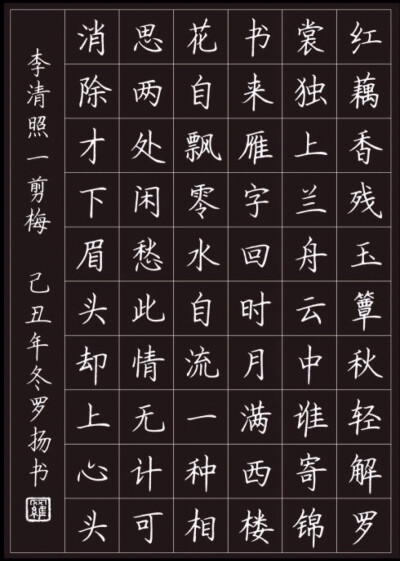 红藕香残玉簟秋轻解罗
裳独上兰舟云中谁寄锦
书来雁字回时月满西楼
花自飘零水自流一种相
思两处闲愁此情无计可
消除才下眉头却上心头
李清照一剪梅 己丑年冬罗扬书
羅